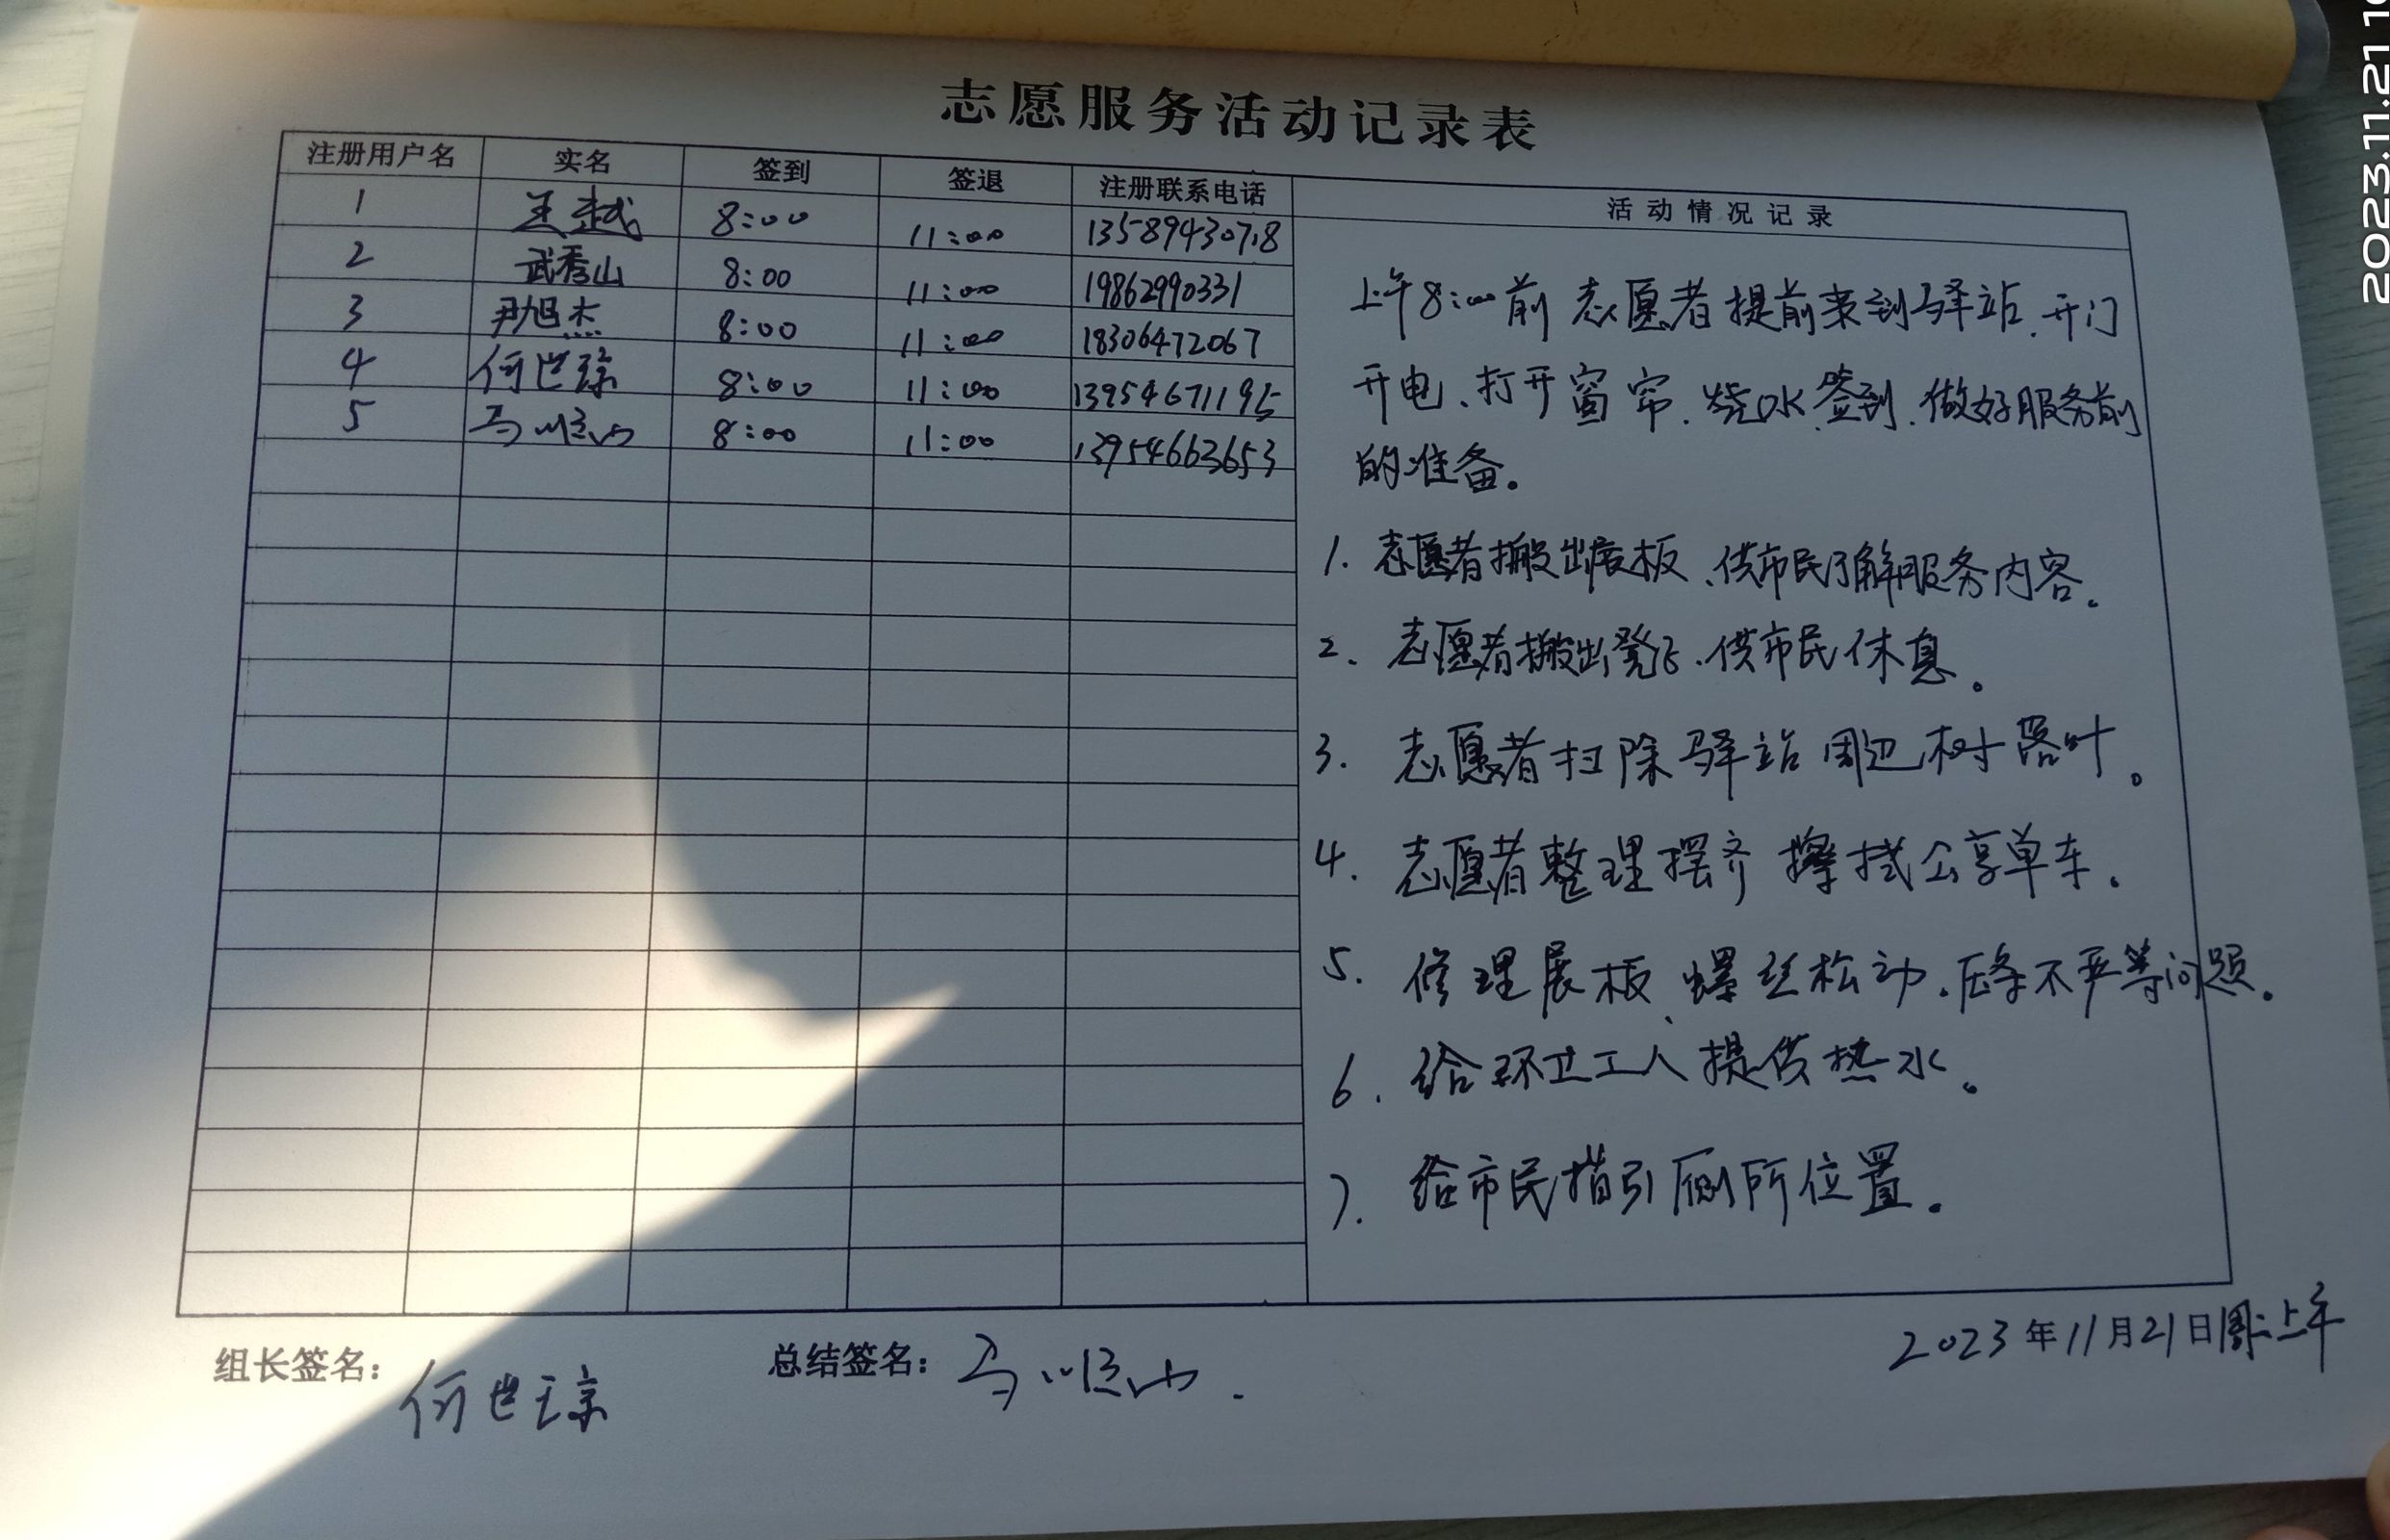 志愿服务活动记录表
注册用户名 实名 签到 签退 注册联系电话 活动情况记录
1 王越 8:00 11:00 13589430718
2 武秀山 8:00 11:00 19862990331
3 尹旭杰 8:00 11:00 18306472067
4 何世琼 8:00 11:00 13954671195
5 马顺山 8:00 11:00 13954663653
上午8:00前志愿者提前来到驿站、开门
开电、打开窗帘、烧水、签到、做好服务前
的准备。
1. 志愿者搬出展板、供市民了解服务内容。
2. 志愿者搬出凳子、供市民休息。
3. 志愿者扫除驿站周边树落叶。
4. 志愿者整理摆齐擦拭公享单车。
5. 修理展板、螺丝松动、压条不严等问题。
6. 给环卫工人提供热水。
7. 给市民指引厕所位置。
组长签名: 何世琼 总结签名: 马顺山. 2023年11月21日周二上午
2023.11.21